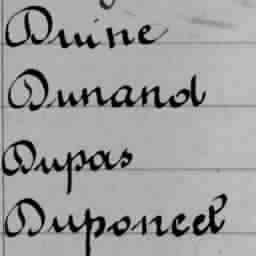 Duine
Dunand
Dupas
Duponcel